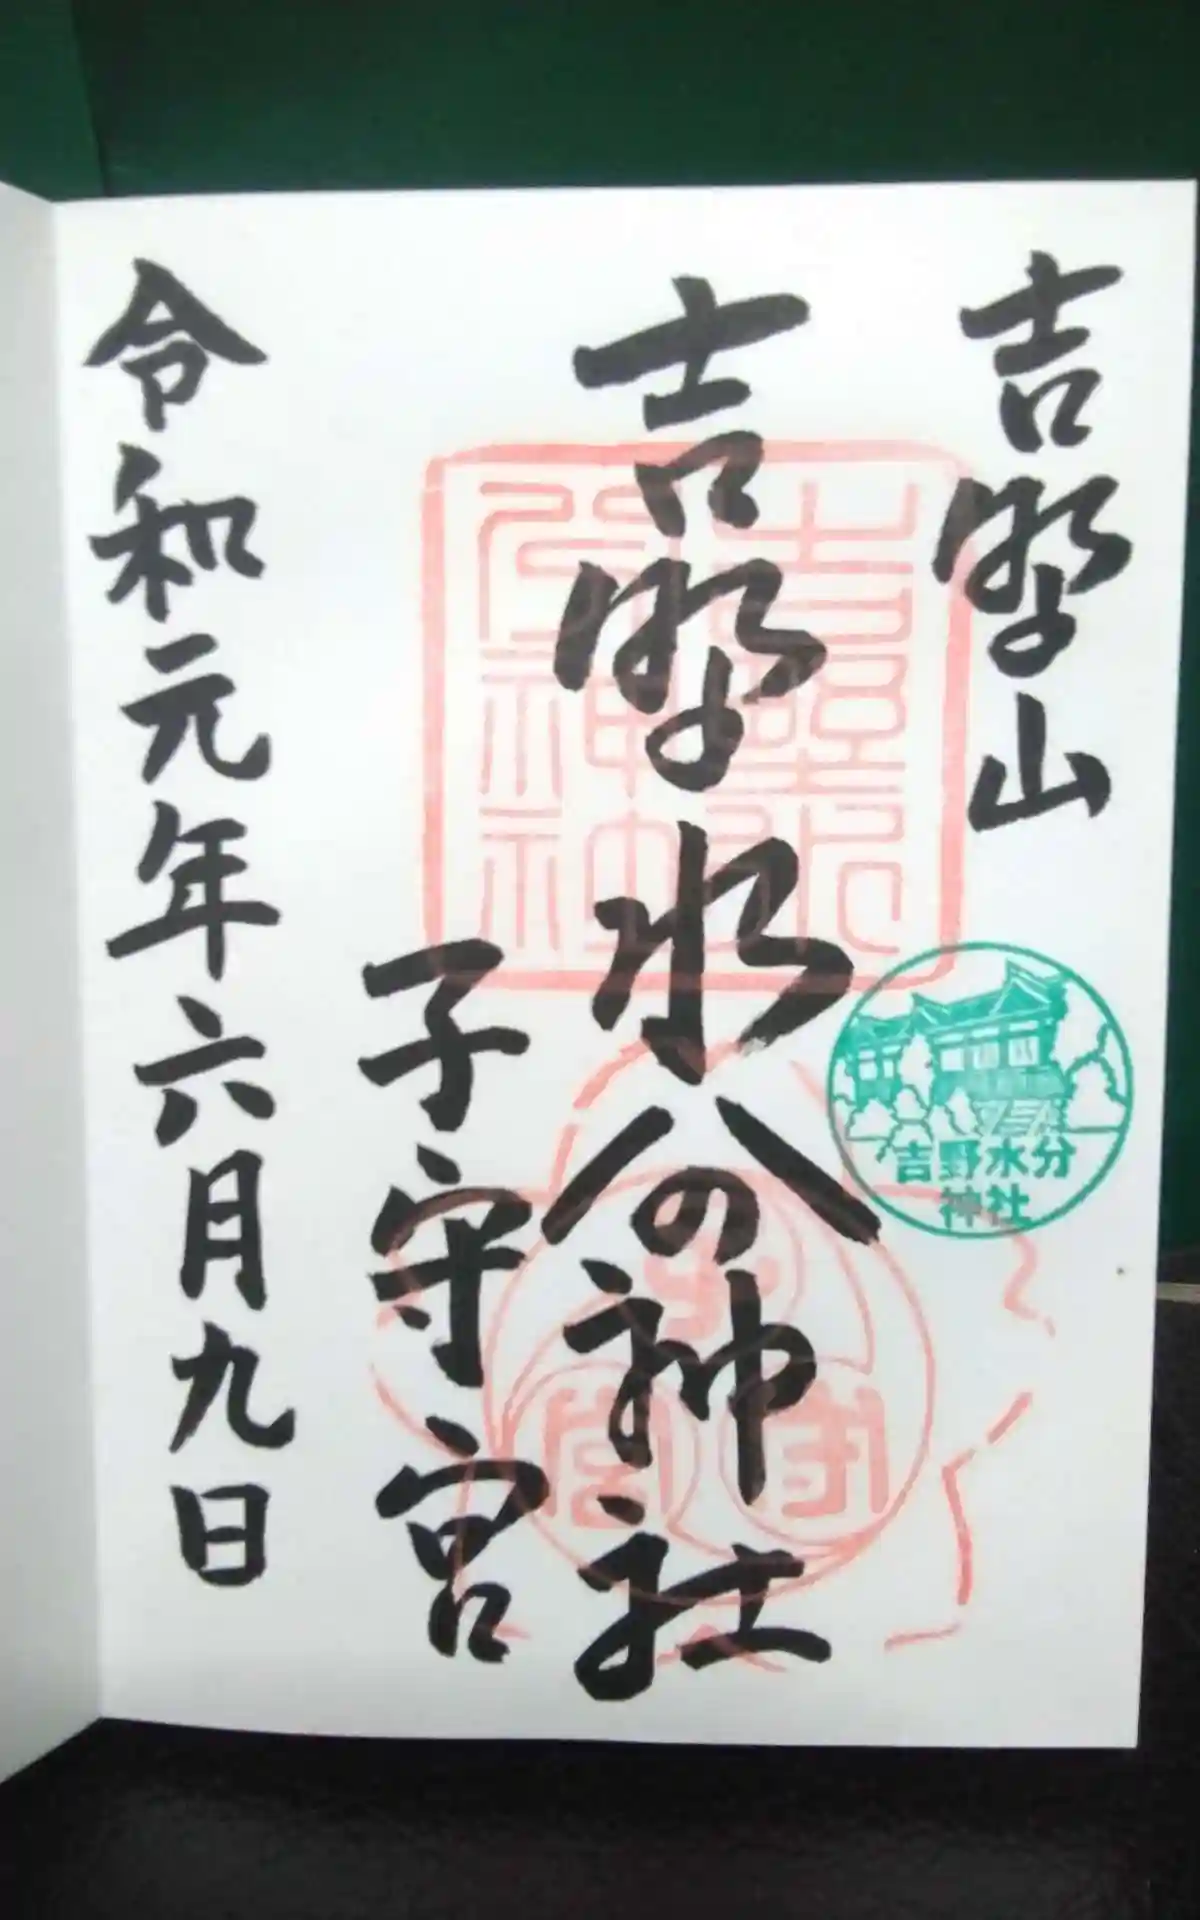 吉野山
吉野水分神社
子守宮
令和元年六月九日
吉野水分
神社
子守宮